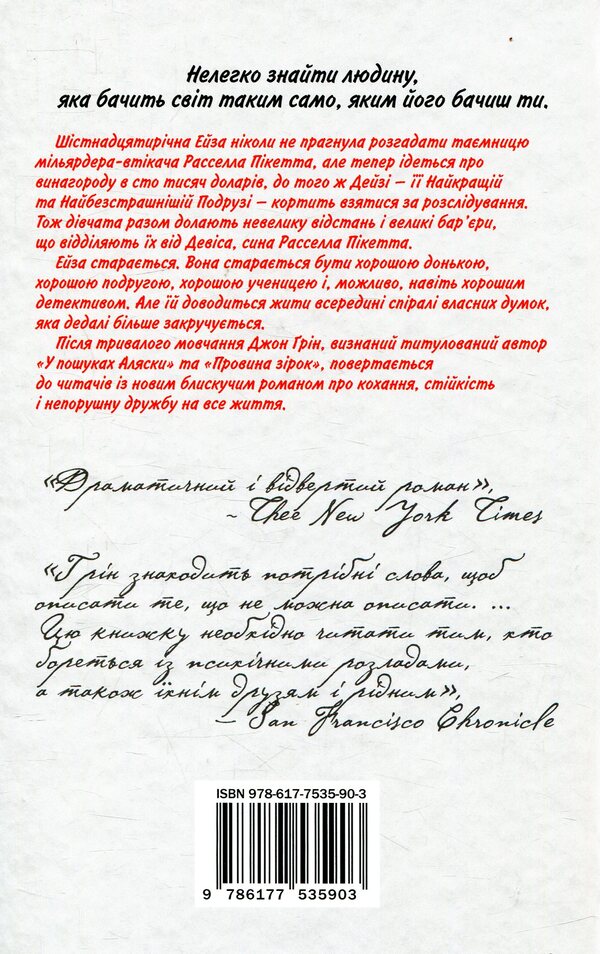 Нелегко знайти людину,
яка бачить світ таким само, яким його бачиш ти.
Шістнадцятирічна Ейза ніколи не прагнула розгадати таємницю
мільярдера-втікача Расселла Пікетта, але тепер ідеться про
винагороду в сто тисяч доларів, до того ж Дейзі – її Найкращій
та Найбезстрашнішій Подрузі – кортить взятися за розслідування.
Тож дівчата разом долають невелику відстань і великі бар'єри,
що відділяють їх від Девіса, сина Расселла Пікетта.
Ейза старається. Вона старається бути хорошою донькою,
хорошою подругою, хорошою ученицею і, можливо, навіть хорошим
детективом. Але їй доводиться жити всередині спіралі власних думок,
яка дедалі більше закручується.
Після тривалого мовчання Джон Ґрін, визнаний титулований автор
«У пошуках Аляски» та «Провина зірок», повертається
до читачів із новим блискучим романом про кохання, стійкість
і непорушну дружбу на все життя.
«Драматичний і відвертий роман»,
~ Thee New York Times
«Грін знаходить потрібні слова, щоб
описати те, що не можна описати. ...
Цю книжку необхідно читати тим, хто
бореться із психічними розладами,
а також їхнім друзям і рідним»,
– San Francisco Chronicle
ISBN 978-617-7535-90-3
9 786177 535903